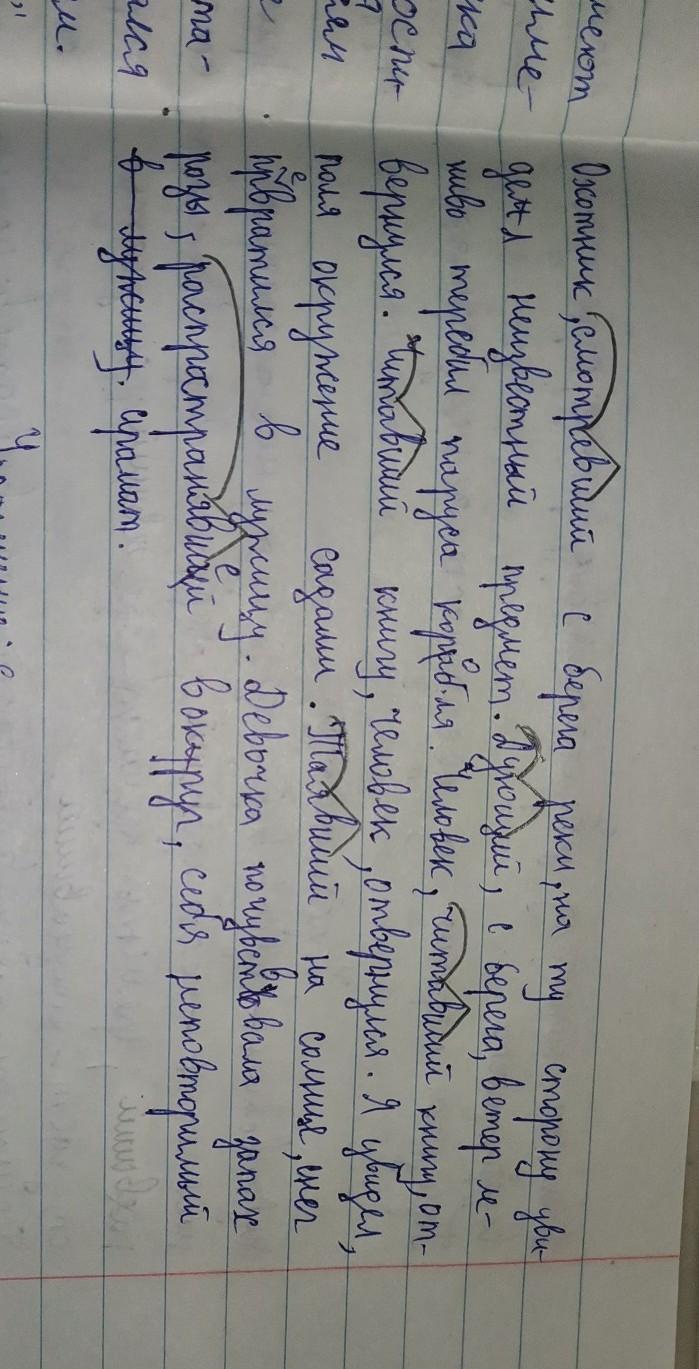 меют
ка
та-
ался
Охотник, смотравший с берега реки, на ту сторону уви-
дел неизвестный предмет. Дующий, с берега, ветер ле-
ниво теребил паруса корабля. Человек, читавший книгу, от-
вернулся. Читавший книгу, человек, отвернулся. Я увидел,
поля окружение садами. Таявший на солнце, снег
превратился в лужицу. Девочка почувствовала запах
розы, распространявшей вокруг, себя неповторимый
в лужицу. аромат.